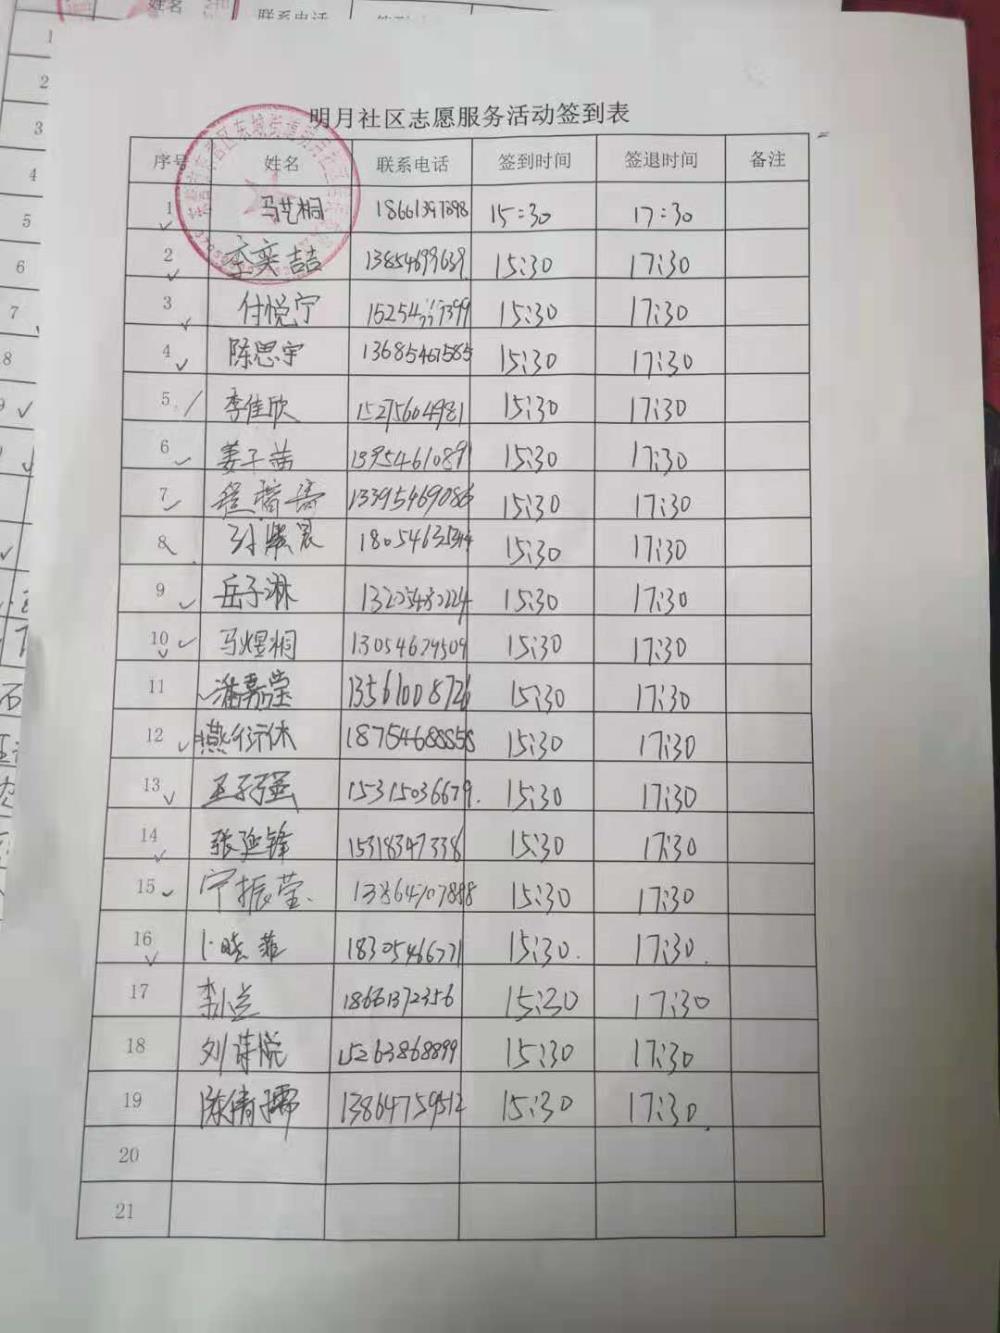 明月社区志愿服务活动签到表
序号 姓名 联系电话 签到时间 签退时间 备注
1 马艺桐 15:30 17:30
2 李奕喆 13854699639 15:30 17:30
3 付悦宁 15:30 17:30
4 陈思宇 13685467585 15:30 17:30
5 李佳欣 15275604981 15:30 17:30
6 姜子苗 13954610891 15:30 17:30
7 13395469086 15:30 17:30
8 15:30 17:30
9 岳子淋 15:30 17:30
10 马煜桐 13054679509 15:30 17:30
11 潘嘉莹 13561008726 15:30 17:30
12 燕衍休 18754688858 15:30 17:30
13 王子强 15315036679 15:30 17:30
14 张延锋 15318347338 15:30 17:30
15 宁振莹 13864707888 15:30 17:30
16 卜晓菲 18305466771 15:30 17:30
17 李小兰 18661372356 15:30 17:30
18 刘诗悦 15263868899 15:30 17:30
19 陈倩孺 13864759512 15:30 17:30
20
21